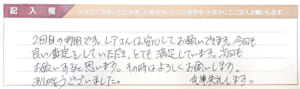 記入欄
2回目の利用です。レアさんは安心してお願いできます。今回も
良い査定をしていただき、とても満足しています。次回も
お願いすると思います。その時はよろしくお願いします。
ありがとうございました。